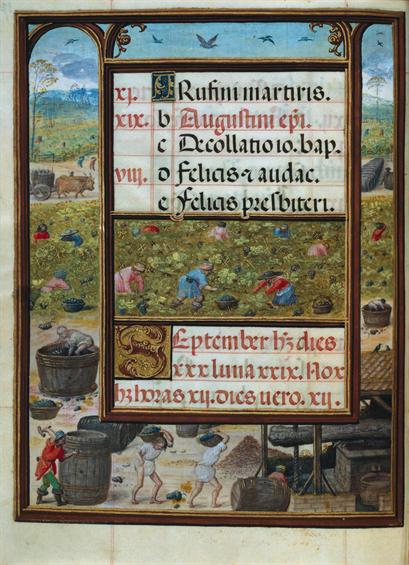 xj. A Rufini martiris.
xix. b Augustini ep̄i.
c Decollatio io. bap.
viii. d Felicis ⁊ audac.
e Felicis presbiteri.
September hꝫ dies
xxx luna xxix. Nox
hꝫ horas xij. dies uero. xij.